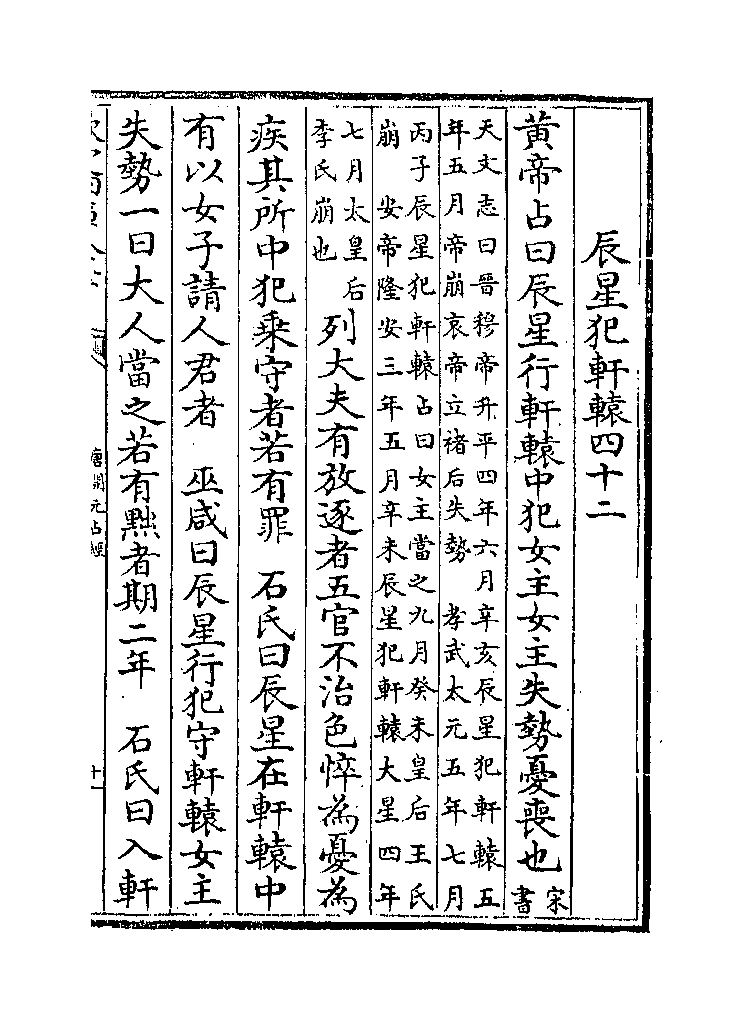 辰星犯軒轅四十二
黄帝占曰辰星行軒轅中犯女主女主失勢憂喪也宋書
天文志曰晉穆帝升平四年六月辛亥辰星犯軒轅五
年五月帝崩哀帝立褚后失勢 孝武太元五年七月
丙子辰星犯軒轅占曰女主當之九月癸未皇后王氏
崩 安帝隆安三年五月辛未辰星犯軒轅大星四年
七月太皇后
李氏崩也
列大夫有放逐者五官不治色悴為憂為
疾其所中犯乘守者若有罪 石氏曰辰星在軒轅中
有以女子請人君者 巫咸曰辰星行犯守軒轅女主
失勢一曰大人當之若有黜者期二年 石氏曰入軒
唐開元占經
十一